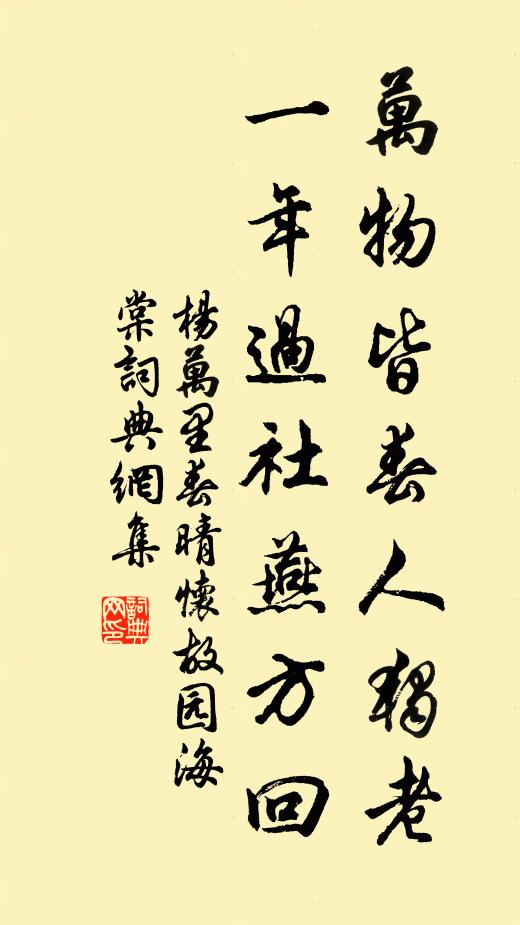 萬物皆春人獨老
一年過社燕方回
楊萬里春晴懷故园海
棠詞典網集
詞典网印